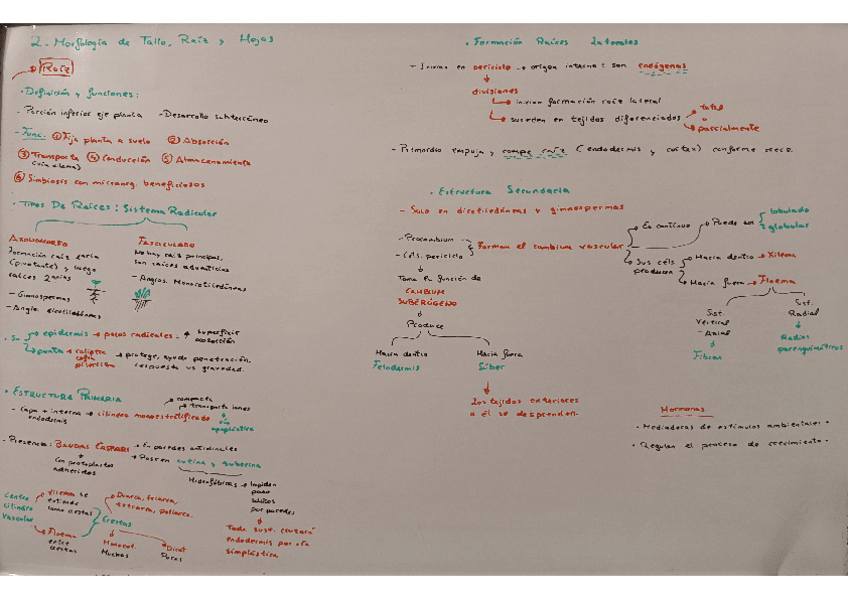 2. Morfología de Tallo, Raíz y Hojas
Raíz
· Definición y funciones:
- Porción inferior eje planta - Desarrollo subterráneo
- Func. ① Fija planta a suelo ② Absorción
③ Transporte ④ Conducción ⑤ Almacenamiento
(vía xilema)
⑥ Simbiosis con microorg. beneficiosos
· Tipos De Raíces: Sistema Radicular
Axonomorfo
Formación raíz 1aria
(pivotante) y luego
raíces 2arias
- Gimnospermas
- Angio. dicotiledóneas
Fasciculado
No hay raíz principal,
son raíces adventicias
- Angios. Monocotiledóneas
· Su
epidermis → pelos radicales: ↑ superficie
absorción
punta → caliptra
cofia
pilorriza
→ protege, ayuda penetración.
respuesta vs gravedad.
· Estructura Primaria
- Capa + interna → cilindro monoestratificado
endodermis
compacta
transporta iones
apoplástica
- Presencia: Bandas Caspari → En paredes anticlinales
→ Poseen cutina y suberina
Con protoplastos
adheridos
Hidrofóbicas → Impiden
paso
solutos
por paredes
Toda sust. cruzará
endodermis por vía
simplástica
Centro
Cilindro
Vascular
Xilema se
extiende
como crestas
Floema
entre
crestas
Crestas
Diarca, triarca,
tetrarca, poliarca.
Monocot.
Muchas
Dicot
Pocas
· Formación Raíces Laterales
- Inician en periciclo → origen interno: son endógenas
divisiones
inician formación raíz lateral
suceden en tejidos diferenciados
total
o
parcialmente
- Primordio empuja y rompe raíz (endodermis y córtex) conforme crece.
· Estructura Secundaria
- Solo en dicotiledóneas y gimnospermas
- Procambium
- Céls. periciclo
Forman el cambium vascular
Es continuo
Puede ser
lobulado
globular
Sus céls
producen
Hacia dentro → Xilema
Hacia fuera → Floema
Sist.
Vertical
- Axial
Fibras
Sist.
Radial
Radios
parenquimáticos
Toma la función de
CAMBIUM
SUBERÓGENO
Produce
Hacia dentro
Felodermis
Hacia fuera
Súber
Los tejidos exteriores
a él se desprenden.
Hormonas
· Mediadoras de estímulos ambientales.
· Regulan el proceso de crecimiento.